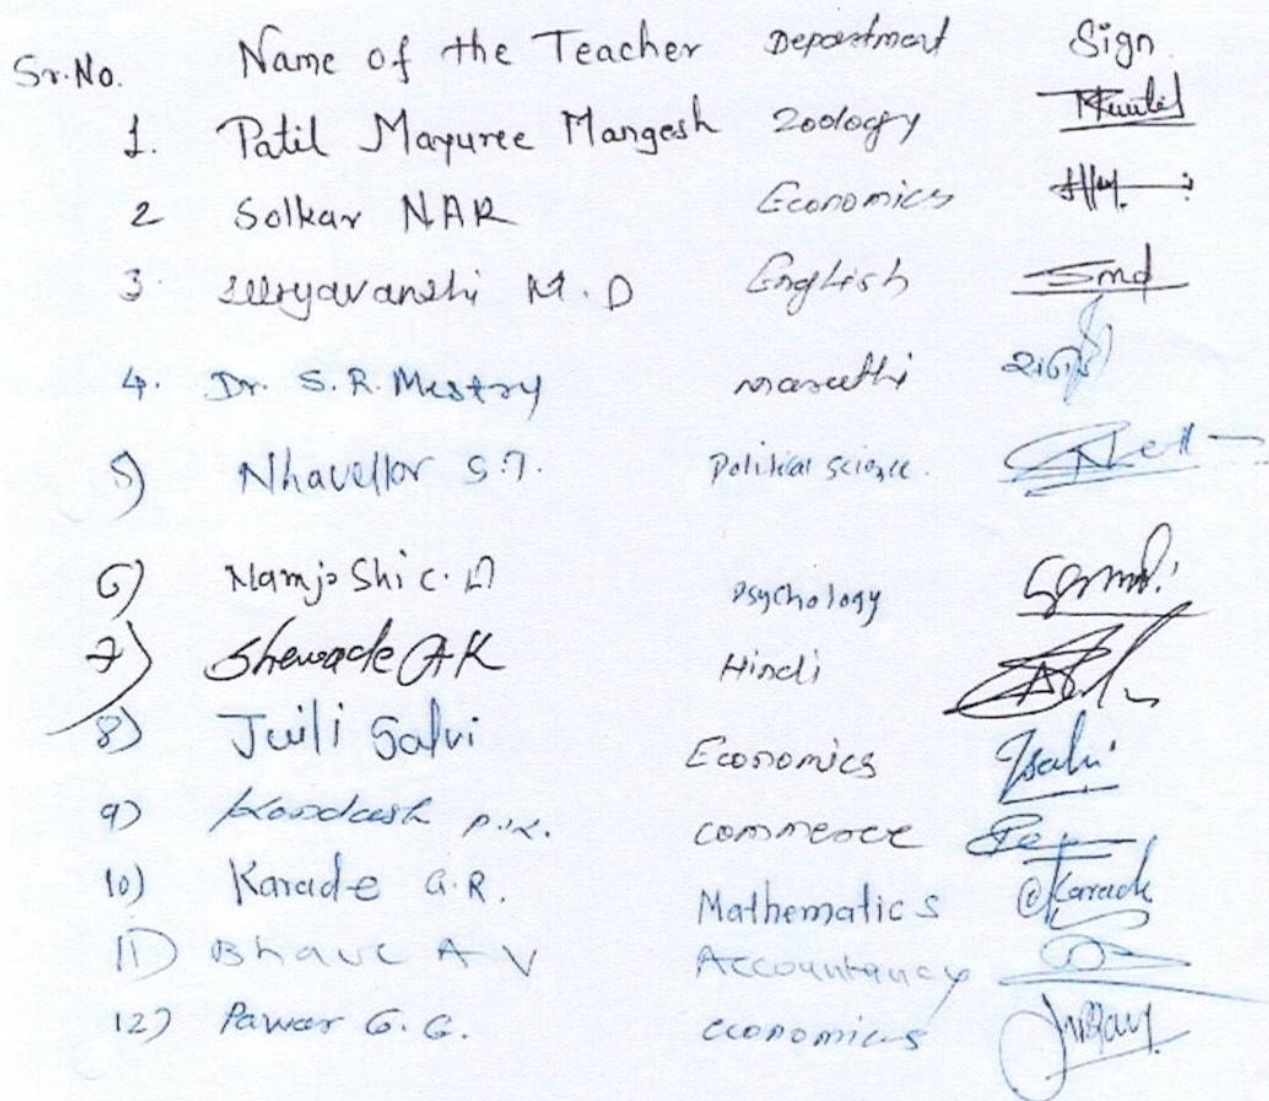 Sr.No. Name of the Teacher Department Sign
1. Patil Mayuree Mangesh Zoology
2 Solkar NAR Economics
3. Suryavanshi M.D English Smd
4. Dr. S.R. Mestry Marathi
5) Political science.
6) Namjoshi C.D Psychology
7) Shewade A K Hindi
8) Juili Salvi Economics Jsalvi
9) P.K. commerce
10) Karade G.R. Mathematics Karade
11) Bhave A V Accountancy
12) Pawar G.G. economics